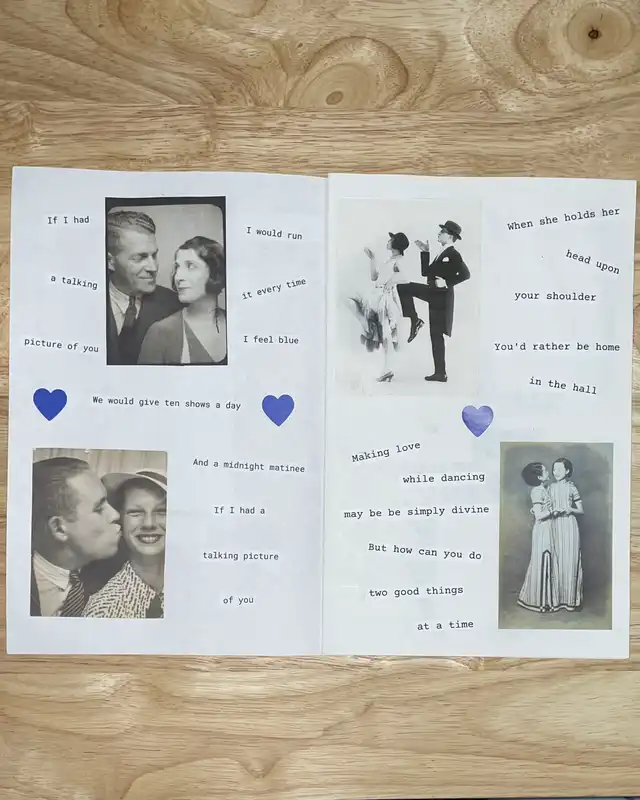 If I had
a talking
picture of you
I would run
it every time
I feel blue
We would give ten shows a day
And a midnight matinee
If I had a
talking picture
of you
When she holds her
head upon
your shoulder
You'd rather be home
in the hall
Making love
while dancing
may be be simply divine
But how can you do
two good things
at a time